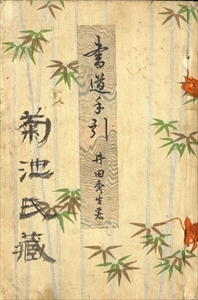 書道手引
井田秀生著
菊池氏藏